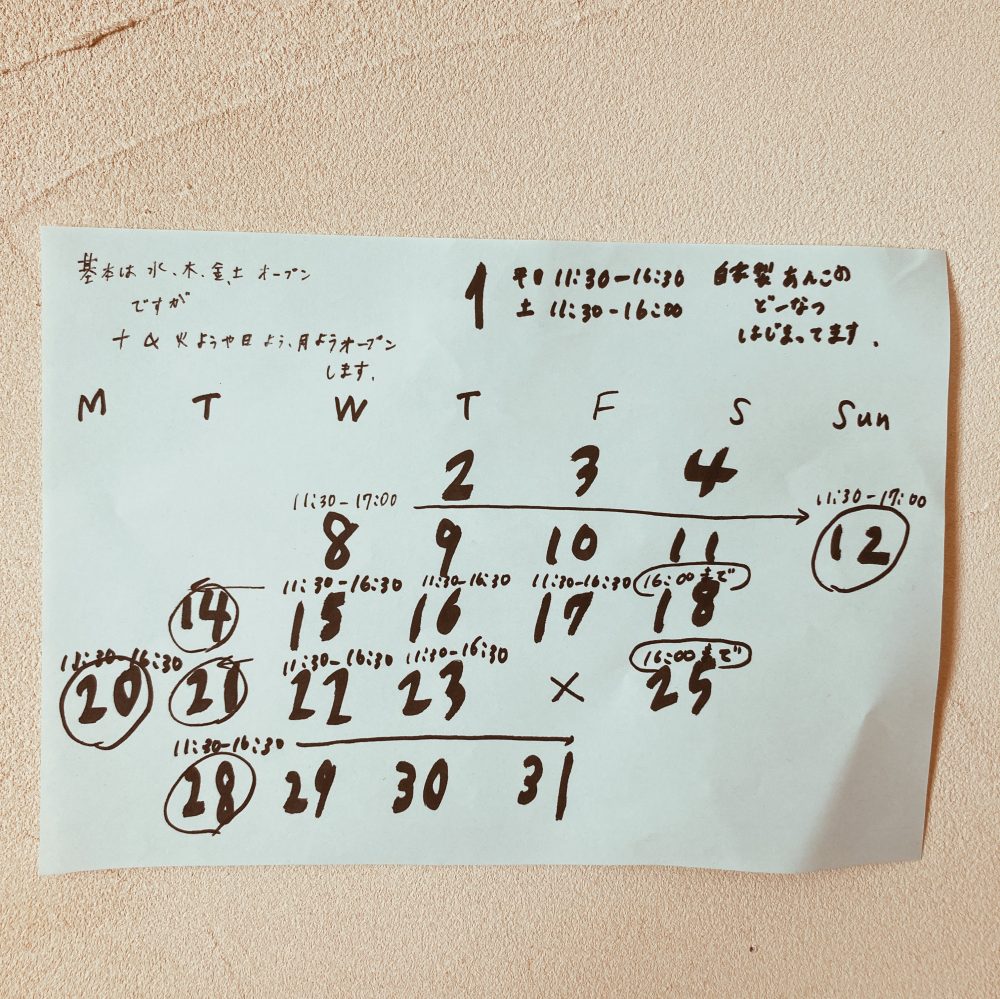 基本は 水、木、金、土 オープン
ですが
+α 火ようや日よう、月ようオープン
します。
1
平日 11:30-16:30
土 11:30-16:00
自家製 あんこの
どーなつ
はじまってます。
M T W T F S Sun
2 3 4
11:30-17:00 11:30-17:00
8 9 10 11 12
11:30-16:30 11:30-16:30 11:30-16:30 16:00まで
14 15 16 17 18
11:30-16:30 11:30-16:30 11:30-16:30 16:00まで
20 21 22 23 × 25
11:30-16:30
28 29 30 31